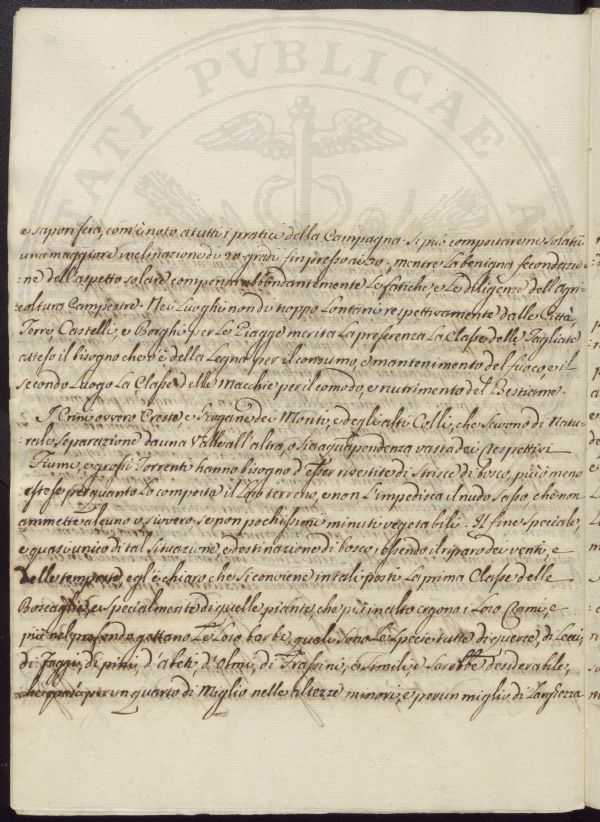 TATI PVBLICAE
e saporifera, com'è noto a tutti i pratici della Campagna. Si può comportarne solatìi
una maggiore inclinazione di 20 gradi fin presso ai 30, mentre la benigna fecondazio=
=ne dall'aspetto solare compensa abbondantemente le fatiche, e le diligenze dell'agri=
coltura Campestre. Nei Luoghi non di troppo lontani respettivamente dalle Città,
Terre, Castelli, e Borghi per le Piagge merita la preferenza la Classe delle Tagliate
atteso il bisogno che v'è della Legna per il consumo, e mantenimento del fuoco, e il
secondo Luogo la Classe delle Macchie per il comodo, e nutrimento del Bestiame.
I Crini ovvero Creste, e Giogane dei Monti, e degli altri Colli, che servono di Natu=
=rale separazione da una Valle all'altra, o sia acquapendenza vasta dei respettivi
Fiumi, e grossi Torrenti hanno bisogno d'esser rivestite di strisce di bosco, più o meno
estese per quanto lo comporta il loro terreno, e non l'impedisca il nudo sasso, che non
ammette alcuno o sivvero se non pochissimi minuti vegetabili. Il fine speciale,
e quasi unico di tal situazione, e destinazione di bosco, essendo il riparo dei venti, e
delle tempeste, egl'è chiaro che si conviene in tali posti la prima Classe delle
Boscaglie, e specialmente di quelle piante, che più in alto ergono i loro Rami, e
più nel profondo gettano le loro barbe, quali sono le specie tutte di querce, di Lecci,
di Faggi, di pini, d'abeti, d'olmi, di Frassini, e simili, e sarebbe desiderabile,
che per un quarto di Miglio nelle altezze minori, e per un miglio di Larghezza